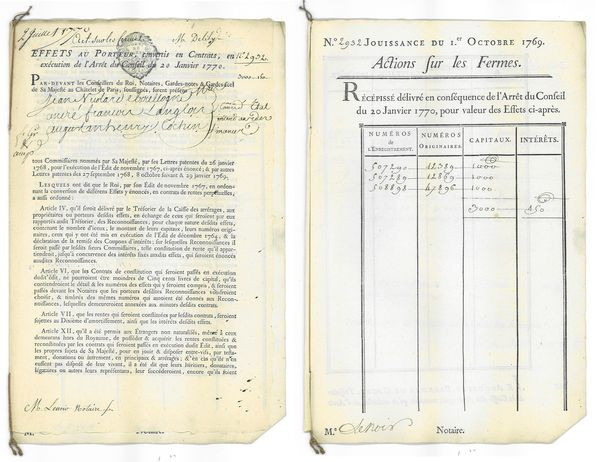 2 Juillet
M. Delisle
EFFETS AU PORTEUR, convertis en Contrats, en N.º 2932
exécution de l'Arrêt du Conseil du 20 Janvier 1770.
PAR-DEVANT les Conseillers du Roi, Notaires, Gardes-notes & Gardes-scel
de Sa Majesté au Châtelet de Paris, soussignés, furent présens
Jean Nicolas
andré françois Langlois
augustin henry Cochin
tous Commissaires nommés par Sa Majesté, par ses Lettres patentes du 26 janvier
1768, pour l'exécution de l'Édit de novembre 1767, ci-après énoncé; & par autres
Lettres patentes des 27 septembre 1768, 8 octobre suivant & 29 janvier 1769.
LESQUELS ont dit que le Roi, par son Édit de novembre 1767, en ordonnant
la conversion de différens Effets y énoncés, en contrats de rentes perpétuelles,
a aussi ordonné:
Article IV, qu'il seroit délivré par le Trésorier de la Caisse des arrérages, aux
propriétaires ou porteurs desdits effets, en échange de ceux qui seroient par eux
rapportés audit Trésorier des Reconnoissances, pour chaque nature desdits effets,
contenant le nombre d'iceux, le montant de leurs capitaux, leurs numéros originaires,
ceux qui y ont été mis en exécution de l'Édit de décembre 1764, & la
déclaration de la remise des Coupons d'intérêts; sur lesquelles Reconnoissances il
seroit passé par lesdits sieurs Commissaires, telle constitution de rente qu'il appartiendroit,
jusqu'à concurrence des intérêts liés auxdits effets, qui seroient énoncés
auxdites Reconnoissances.
Article VI, que les Contrats de constitution qui seroient passés en exécution
dudit édit, ne pourroient être moindres de Cinq cents livres de capital, qu'ils
contiendroient le détail & les numéros des effets qui y seront compris, & seroient
passés devant les Notaires que les porteurs desdites Reconnoissances voudroient
choisir, & timbrés des mêmes numéros qui auroient été donnés aux Reconnoissances,
lesquelles demeureroient annexées aux minutes desdits contrats.
Article VII, que les rentes qui seroient constituées par lesdits contrats, seroient
sujettes au Dixième d'amortissement, ainsi que les intérêts desdits effets.
Article XII, qu'il a été permis aux Étrangers non naturalisés, même à ceux
demeurans hors du Royaume, de posséder & acquérir les rentes constituées &
reconstituées par les contrats qui seroient passés en exécution dudit Édit, ainsi
que les propres sujets de Sa Majesté, pour en jouir & disposer entre-vifs, par testament,
donations ou autrement, en principaux & arrérages; & en cas qu'ils n'en
eussent pas disposé de leur vivant, il a été dit que leurs héritiers, donataires,
légataires ou autres leurs représentans, leur succéderoient, encore qu'ils soient
M. Lenoir Notaire
M.
Notaire.
N.º 2932 JOUISSANCE DU 1.er OCTOBRE 1769.
Actions sur les Fermes.
RÉCÉPISSÉ délivré en conséquence de l'Arrêt du Conseil
du 20 Janvier 1770, pour valeur des Effets ci-après.
NUMÉROS de l'ENREGISTREMENT. NUMÉROS ORIGINAIRES. CAPITAUX. INTÉRÊTS.
507290 12589 1000
507289 12869 1000
508898 47896 1000
3000 150
M.e Lenoir Notaire.